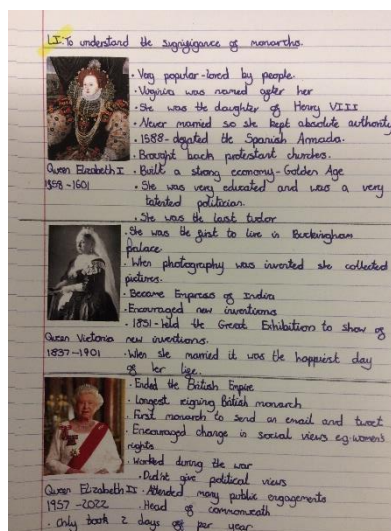 LI: To understand the signigigance of monarchs.
• Very popular - loved by people.
• Virginia was named after her
• She was the daughter of Henry VIII
• Never married so she kept absolute authority
• 1588 - defated the Spanish Armada.
• Brought back protestant churches.
Queen Elizabeth I
• Built a strong economy - Golden Age
1558 - 1601
• She was very educated and was a very
talented politician.
• She was the last tudor
• She was the first to live in Buckingham
palace.
• When photography was invented she collected
pictures.
• Became Empress of India
• Encouraged new inventions
• 1851 - held the Great Exhibition to show of
Queen Victoria
new inventions.
1837 - 1901
• When she married it was the happiest day
of her life.
• Ended the British Empire
• Longest reigning British monarch
• First monarch to send an email and tweet
• Encouraged change in social views eg womens
rights
• Worked during the war
• Didn't give political views
Queen Elizabeth II
• Attended many public engagements
1957 - 2022
• Head of commonwealth
• Only took 2 days of per year